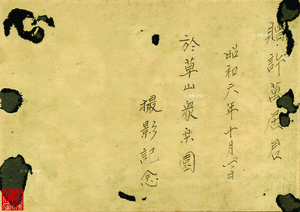 贈許萬居君
昭和六年十月六日
於草山衆樂園
撮影記念